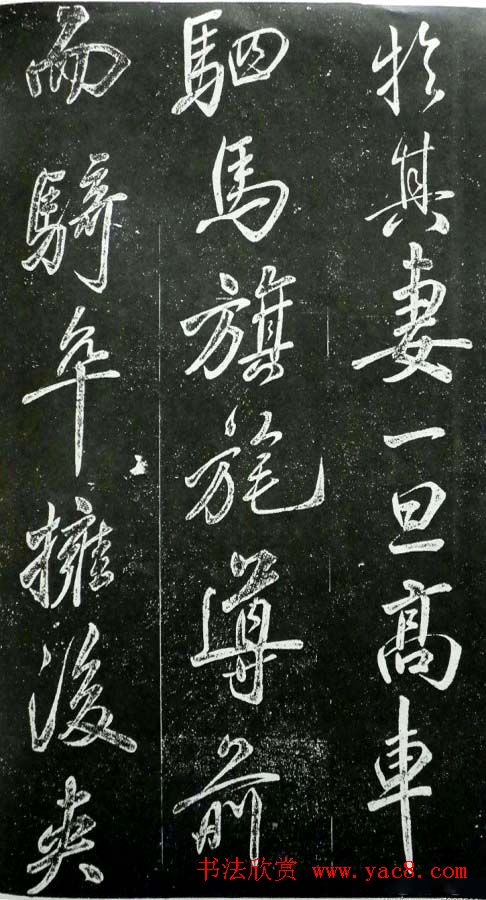 於其妻一旦高車
駟馬旗旄導前
而騎卒擁後夾
书法欣赏 www.yac8.com